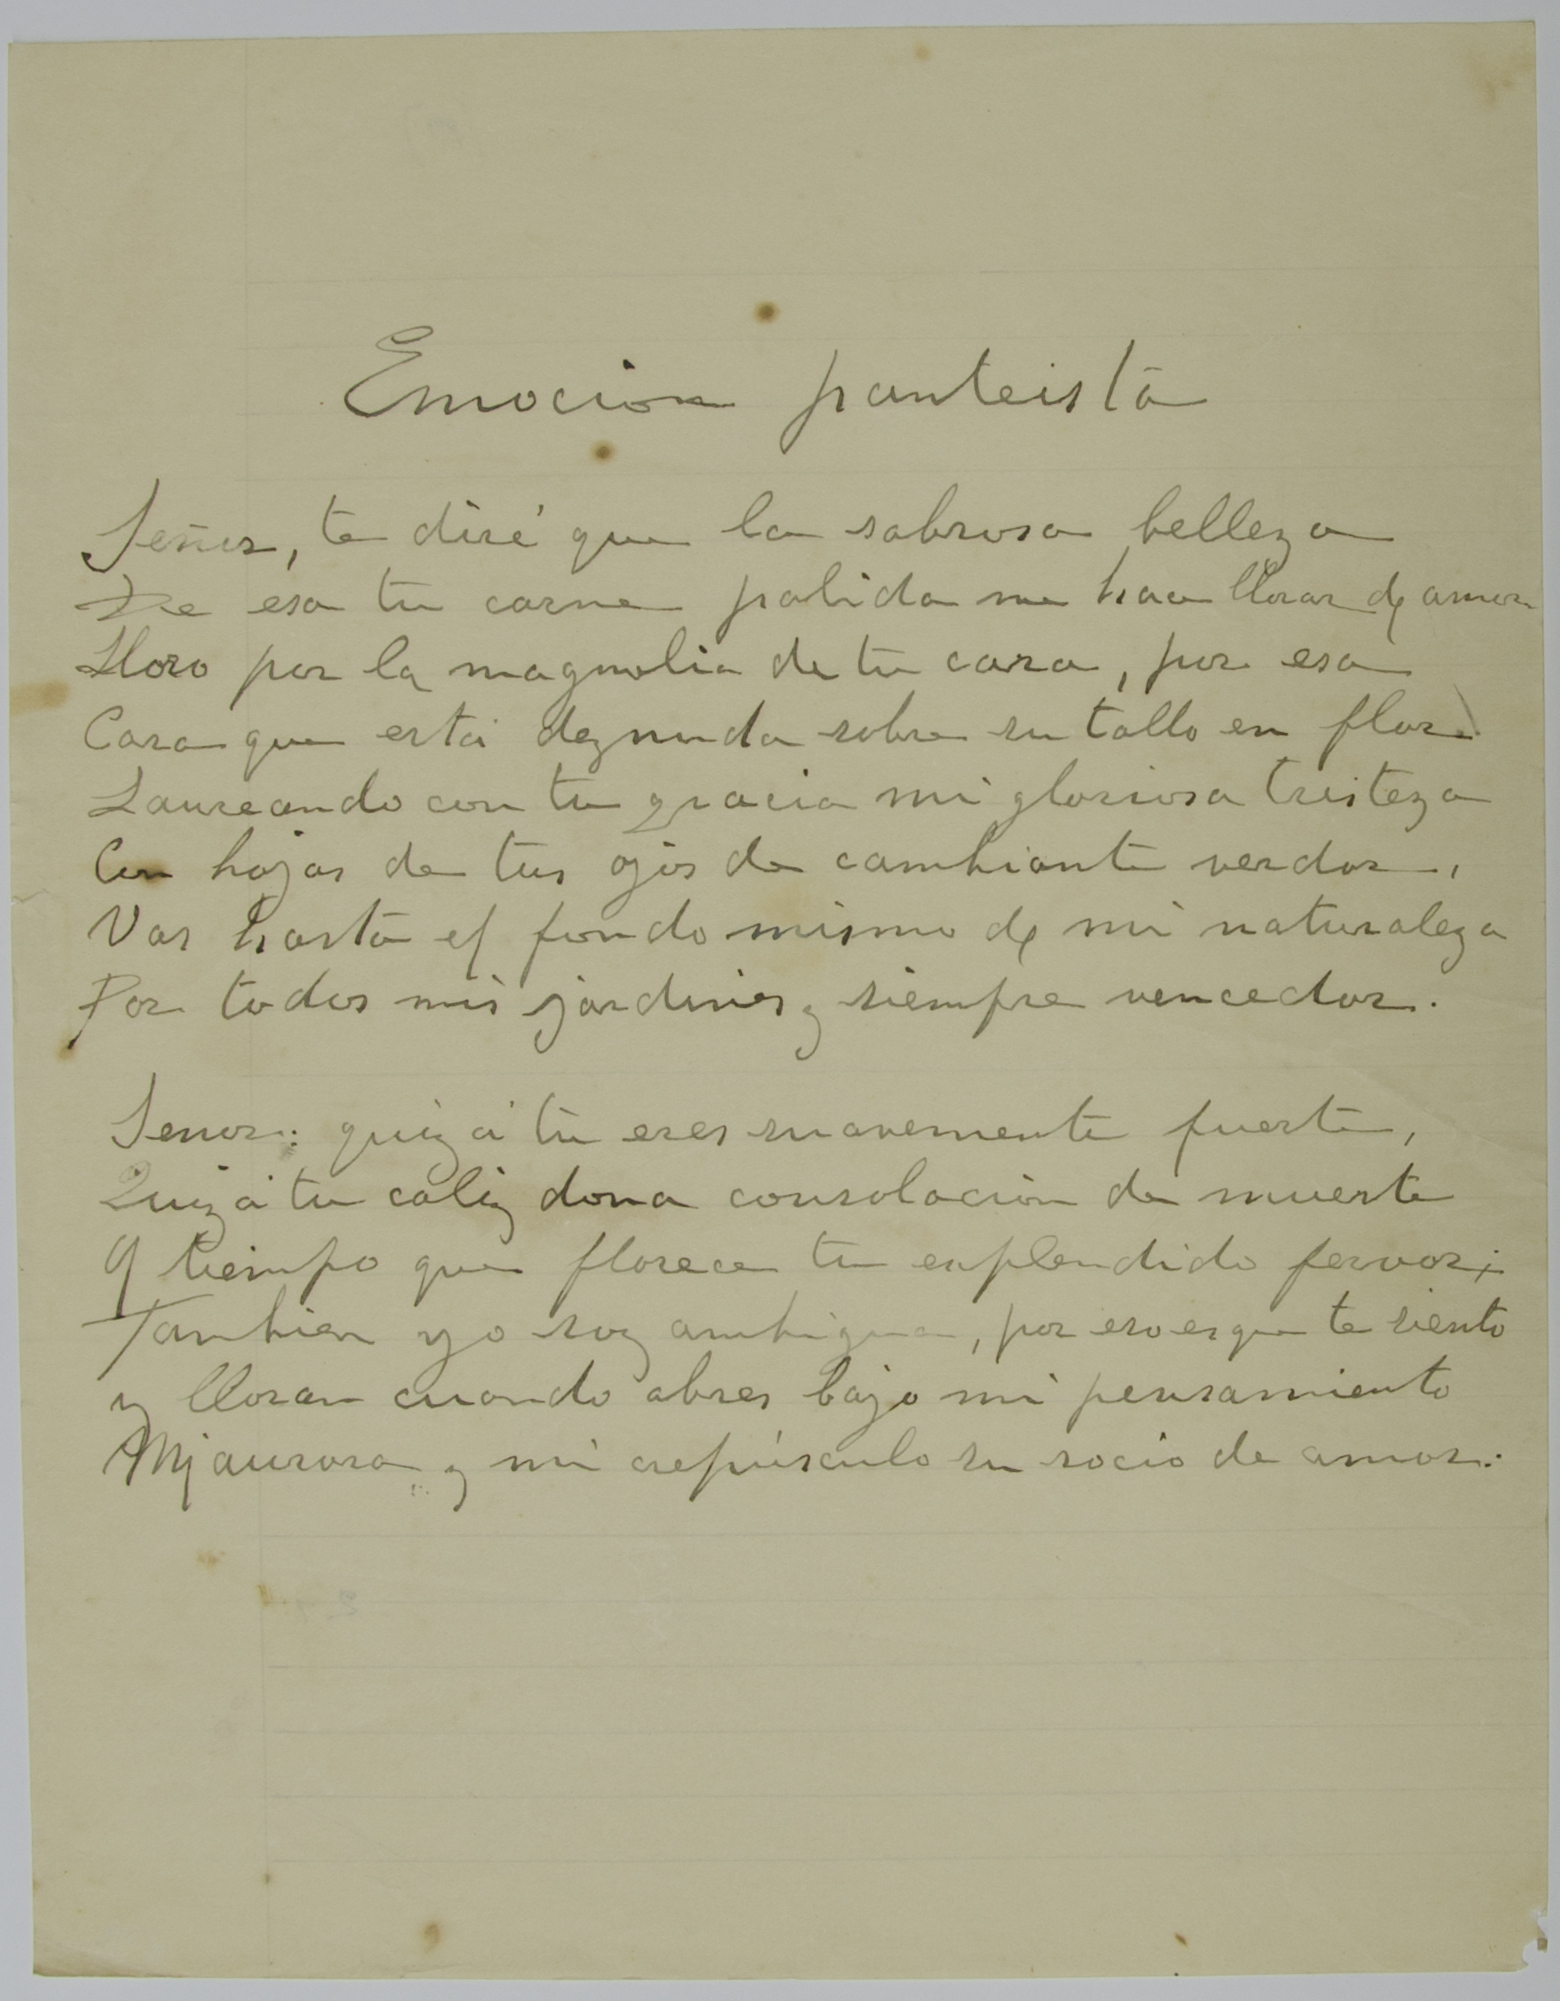 Emocion panteista
Señor, te diré que la sabrosa belleza
De esa tu carne palida me hace llorar de amor
Lloro por la magnolia de tu cara, por esa
Cara que está deznuda sobre su tallo en flor
Laureando con tu gracia mi gloriosa tristeza
Con hojas de tus ojos de cambiante verdor,
Vas hasta el fondo mismo de mi naturaleza
Por todos mis jardines y siempre vencedor.
Senor: quizá tú eres suavemente fuerte,
Quizá tu caliz dona consolación de muerte
Al tiempo que florece tu esplendido fervor;
Tambien yo soy ambigua, por eso es que te siento
y lloran cuando abres bajo mi pensamiento
Mi aurora y mi crepúsculo su rocio de amor.